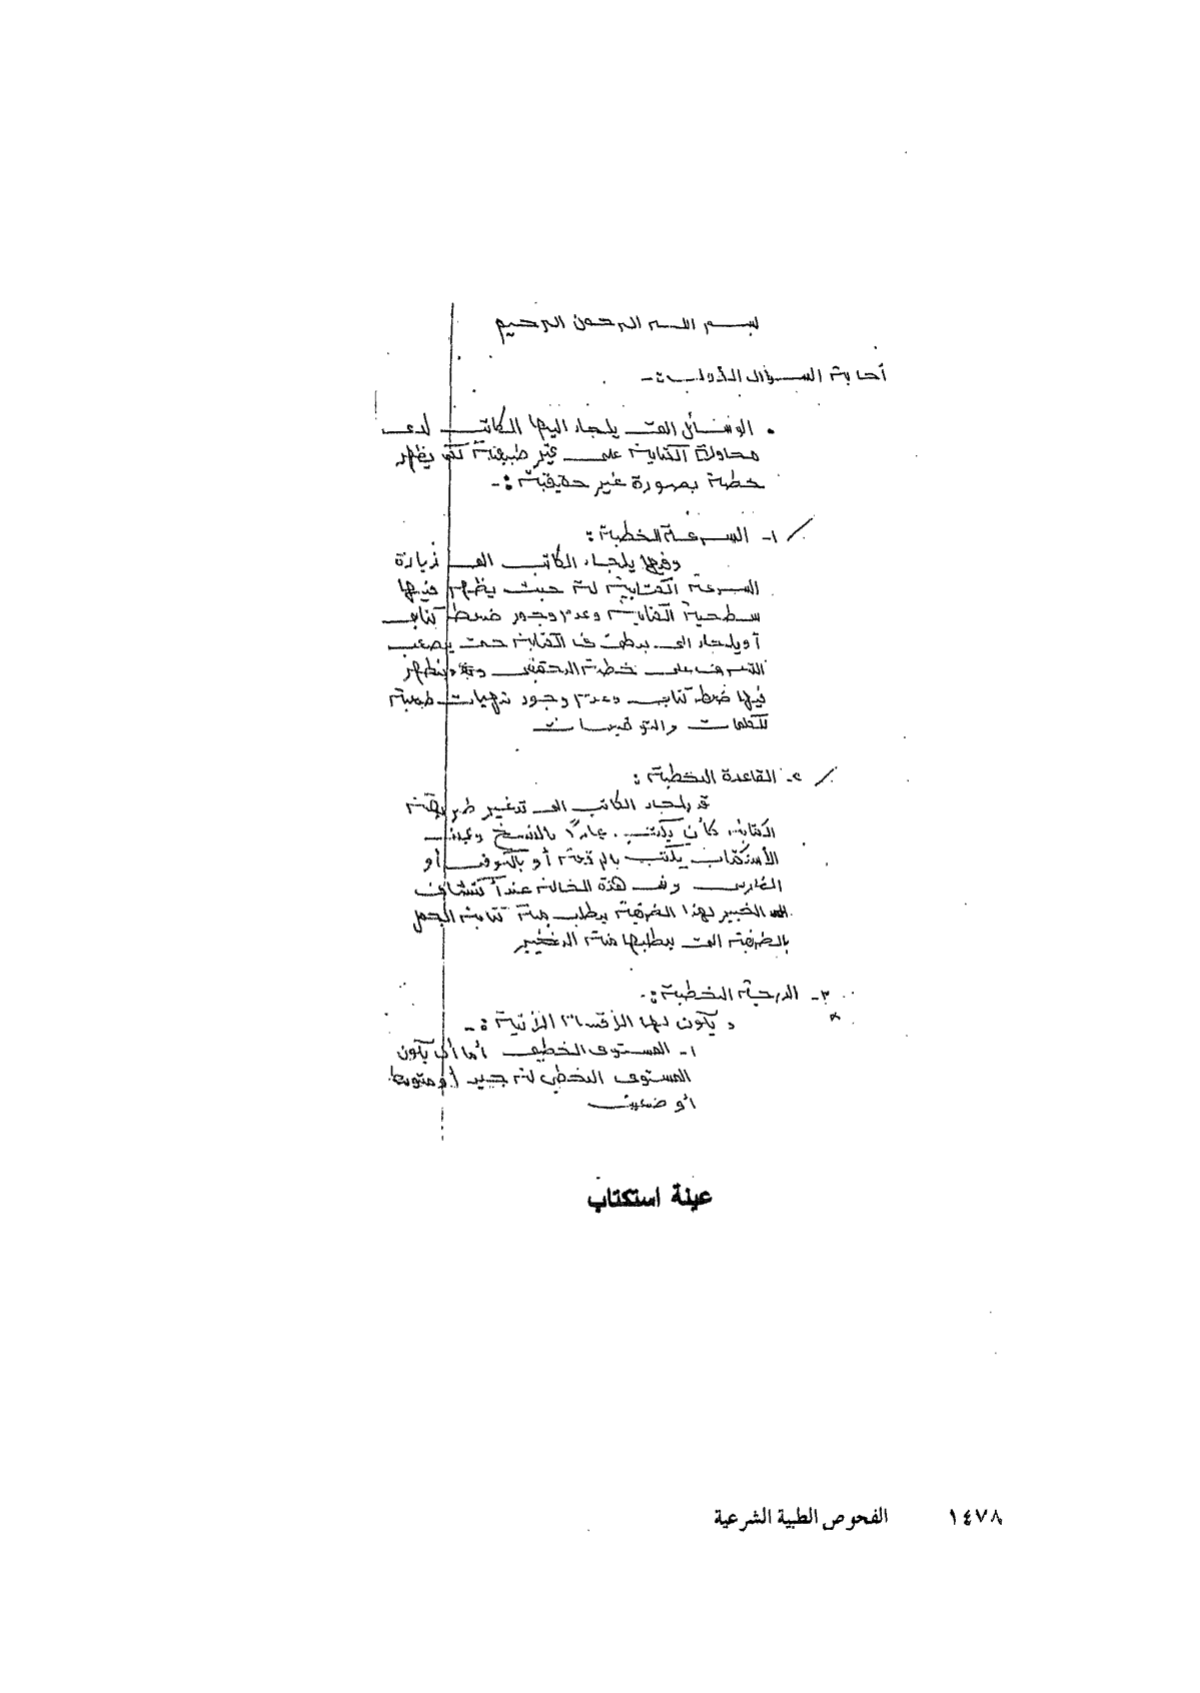 بسم الله الرحمن الرحيم
أجابة السؤال الأول :-
• الوسائل التي يلجاء اليها الكاتب لدى
محاولة الكتابة على غير طبيعته لكي يظهر
خطة بصورة غير حقيقية :-
١- السرعة الخطية :
وفيها يلجاء الكاتب الى زيارة
السرعة الكتابية له حيث يظهر فيها
سطحية الكتابة وعدم وجود ضغط كتابي
أو يلجاء الى بطئ في الكتابة حتى يصعب
التعرف على خطة الحقيقي ويظهر
فيها ضغط كتابي وعدم وجود نهايات طبعية
للكلمات والتوقيعات
٢- القاعدة الخطية :
قد يلجاء الكاتب الى تغيير طريقة
الكتابة كأن يكتب بالنسخ وعند
الأستكتاب يكتب بالرقعة أو بالكوفي أو
الفارسي وفي هذة الحالة عند أكتشاف
الخبير لهذا الطريقة يطلب منة كتابة الجمل
بالطريقة التي يطلبها منة الخبير
٣- الدرجة الخطية :-
ويكون لها الأقسام الأتية :-
١- المستوى الخطي أما أن يكون
المستوى الخطي له جيد أو متوسط
أو ضعيف
عينة استكتاب
١٤٧٨ الفحوص الطبية الشرعية